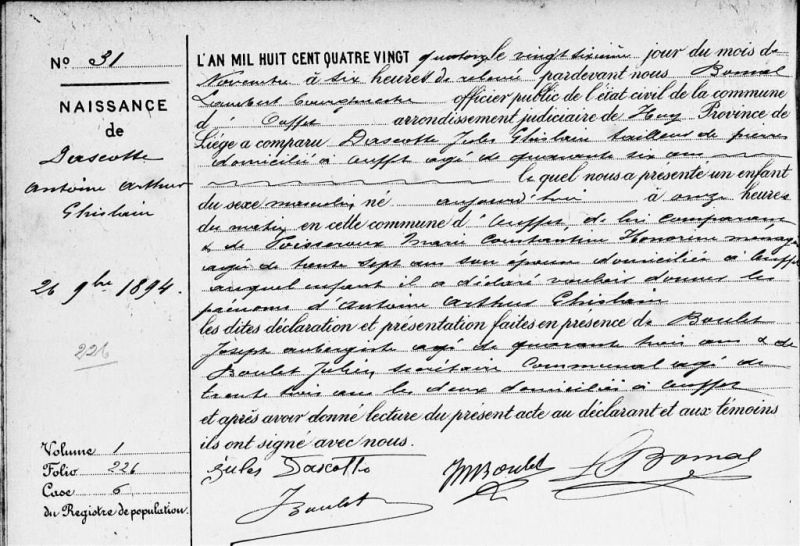 No 31
NAISSANCE
de
Dascotte
Antoine Arthur
Ghislain
26 9bre 1894.
226
Volume 1
Folio 226
Case 6
du Registre de population.
L'AN MIL HUIT CENT QUATRE VINGT quatorze le vingt sixième jour du mois de
Novembre à six heures de relevée pardevant nous Bomal
Lambert bourgmestre officier public de l'état civil de la commune
d'Ouffet arrondissement judiciaire de Huy Province de
Liège a comparu Dascotte Jules Ghislain tailleur de pierres
domicilié à Ouffet agé de quarante six ans
le quel nous a présenté un enfant
du sexe masculin né aujourd'hui à onze heures
du matin en cette commune d'Ouffet, de lui comparant
& de Marie Constantine Honorine ménagère
agée de trente sept ans son épouse domiciliée à Ouffet
auquel enfant il a déclaré vouloir donner les
prénoms d'Antoine Arthur Ghislain
les dites déclaration et présentation faites en présence de Boulet
Joseph aubergiste agé de quarante trois ans & de
Boulet Julien secrétaire Communal agé de
trente trois ans les deux domiciliés à Ouffet
et après avoir donné lecture du présent acte au déclarant et aux témoins
ils ont signé avec nous.
Jules Dascotte
Boulet
L Bomal
J Boulet